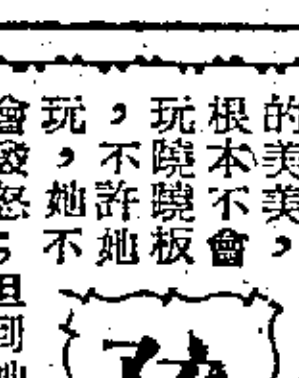 的美美，
根本不會
玩蹺蹺板
，不許她
玩，她不
會發怒；但到她